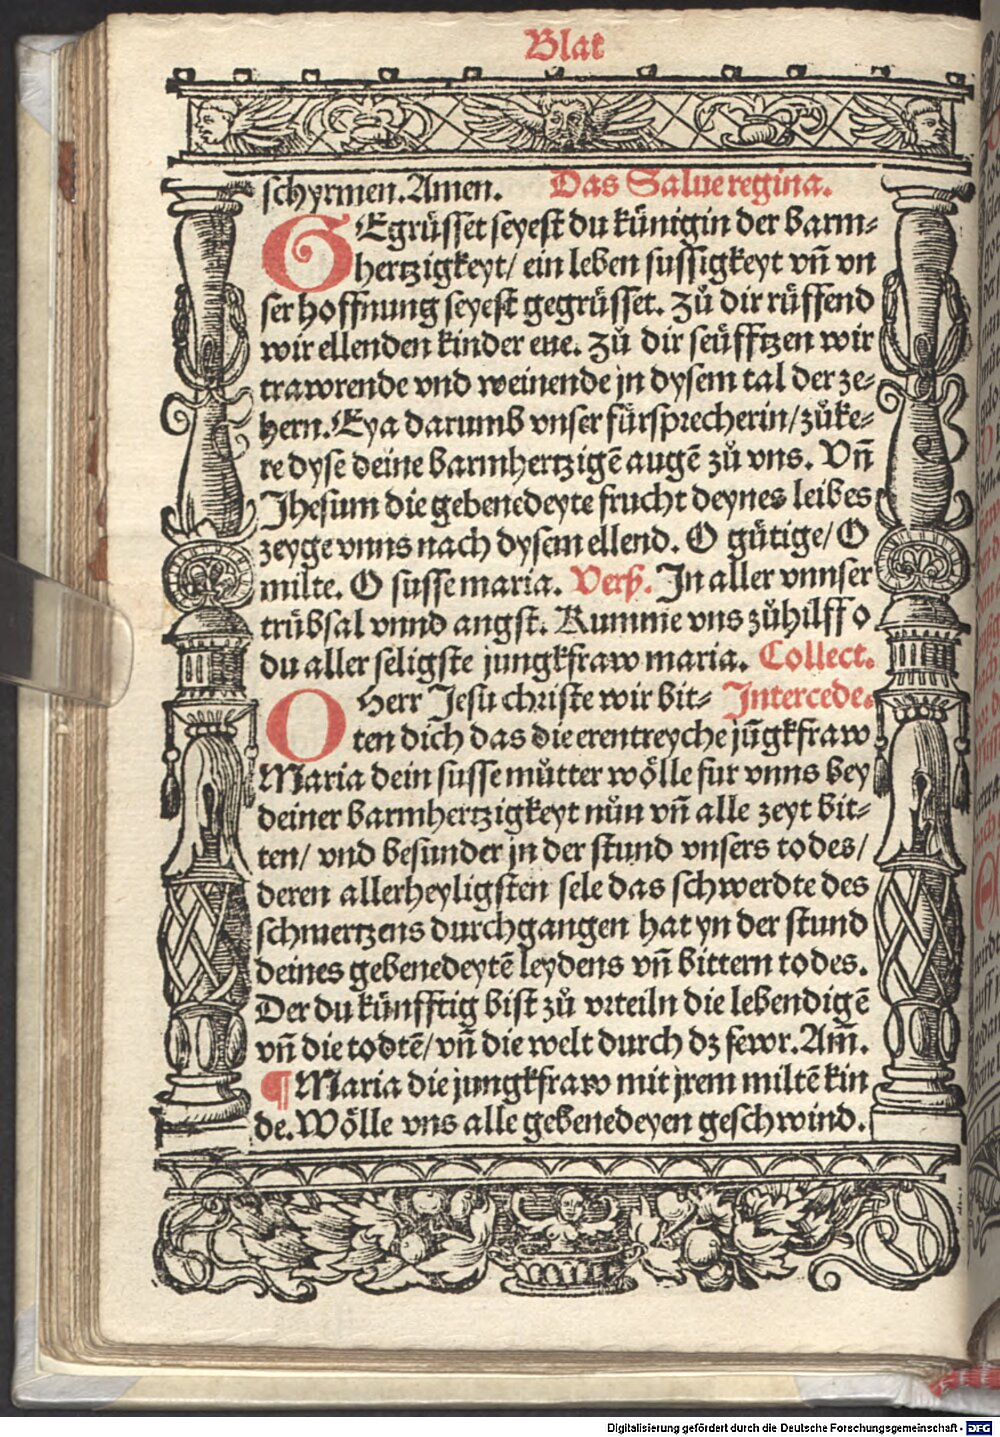 Blat
schyrmen. Amen. Das Salue regina.
GEgrüsset seyest du künigin der barm⸗
hertzigkeyt/ ein leben sussigkeyt vñ vn
ser hoffnung seyest gegrüsset. Zů dir rüffend
wir ellenden kinder eue. Zů dir seüfftzen wir
trawrende vnd weinende jn dysem tal der ze⸗
hern. Eya darumb vnser fürsprecherin/ zůke⸗
re dyse deine barmhertzigē augē zů vns. Vñ
Jhesum die gebenedeyte frucht deynes leibes
zeyge vnns nach dysem ellend. O gütige/ O
milte. O susse maria. Verß. Jn aller vnnser
trübsal vnnd angst. Kumme vns zůhilff o
du aller seligste jungkfraw maria. Collect.
O Herr Jesu christe wir bit⸗ Intercede.
ten dich das die erentreyche jūgkfraw
Maria dein susse můtter wölle fur vnns bey
deiner barmhertzigkeyt nůn vñ alle zeyt bit⸗
ten/ vnd besunder jn der stund vnsers todes/
deren allerheyligsten sele das schwerdte des
schmertzens durchgangen hat yn der stund
deines gebenedeytē leydens vñ bittern todes.
Der du künfftig bist zů vrteiln die lebendigē
vñ die todtē/ vñ die welt durch dz fewr. Am̄.
¶ Maria die jungkfraw mit jrem miltē kin
de. Wölle vns alle gebenedeyen geschwind.
Digitalisierung gefördert durch die Deutsche Forschungsgemeinschaft - DFG